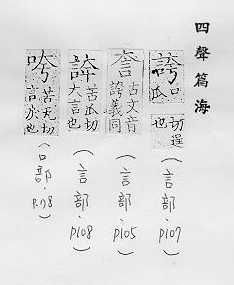 四聲篇海
誇口瓜切逞也
(言部.p107)
古文音誇義同
(言部.p105)
苦瓜切大言也
(言部.p108)
苦瓦切言於也
(口部.p.78)